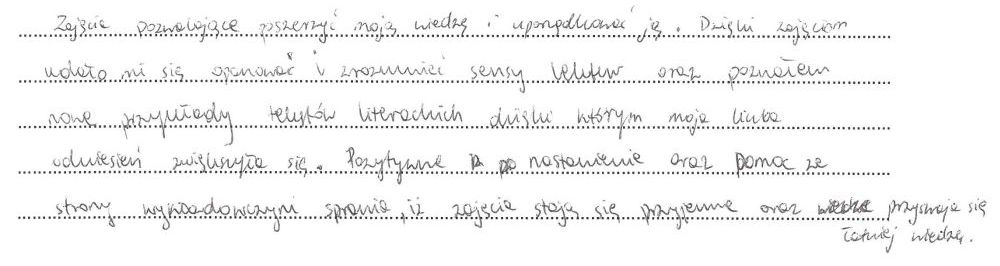 Zajęcia pozwalające poszerzyć moją wiedzę i uporządkować ją. Dzięki zajęciom
udało mi się opanować i zrozumieć sensy tekstów oraz poznałem
nowe przykłady tekstów literackich dzięki którym moja liczba
odniesień zwiększyła się. Pozytywne nastawienie oraz pomoc ze
strony wykładowczyni sprawia, iż zajęcia stają się przyjemne oraz przyswaja się
łatwiej wiedzę.